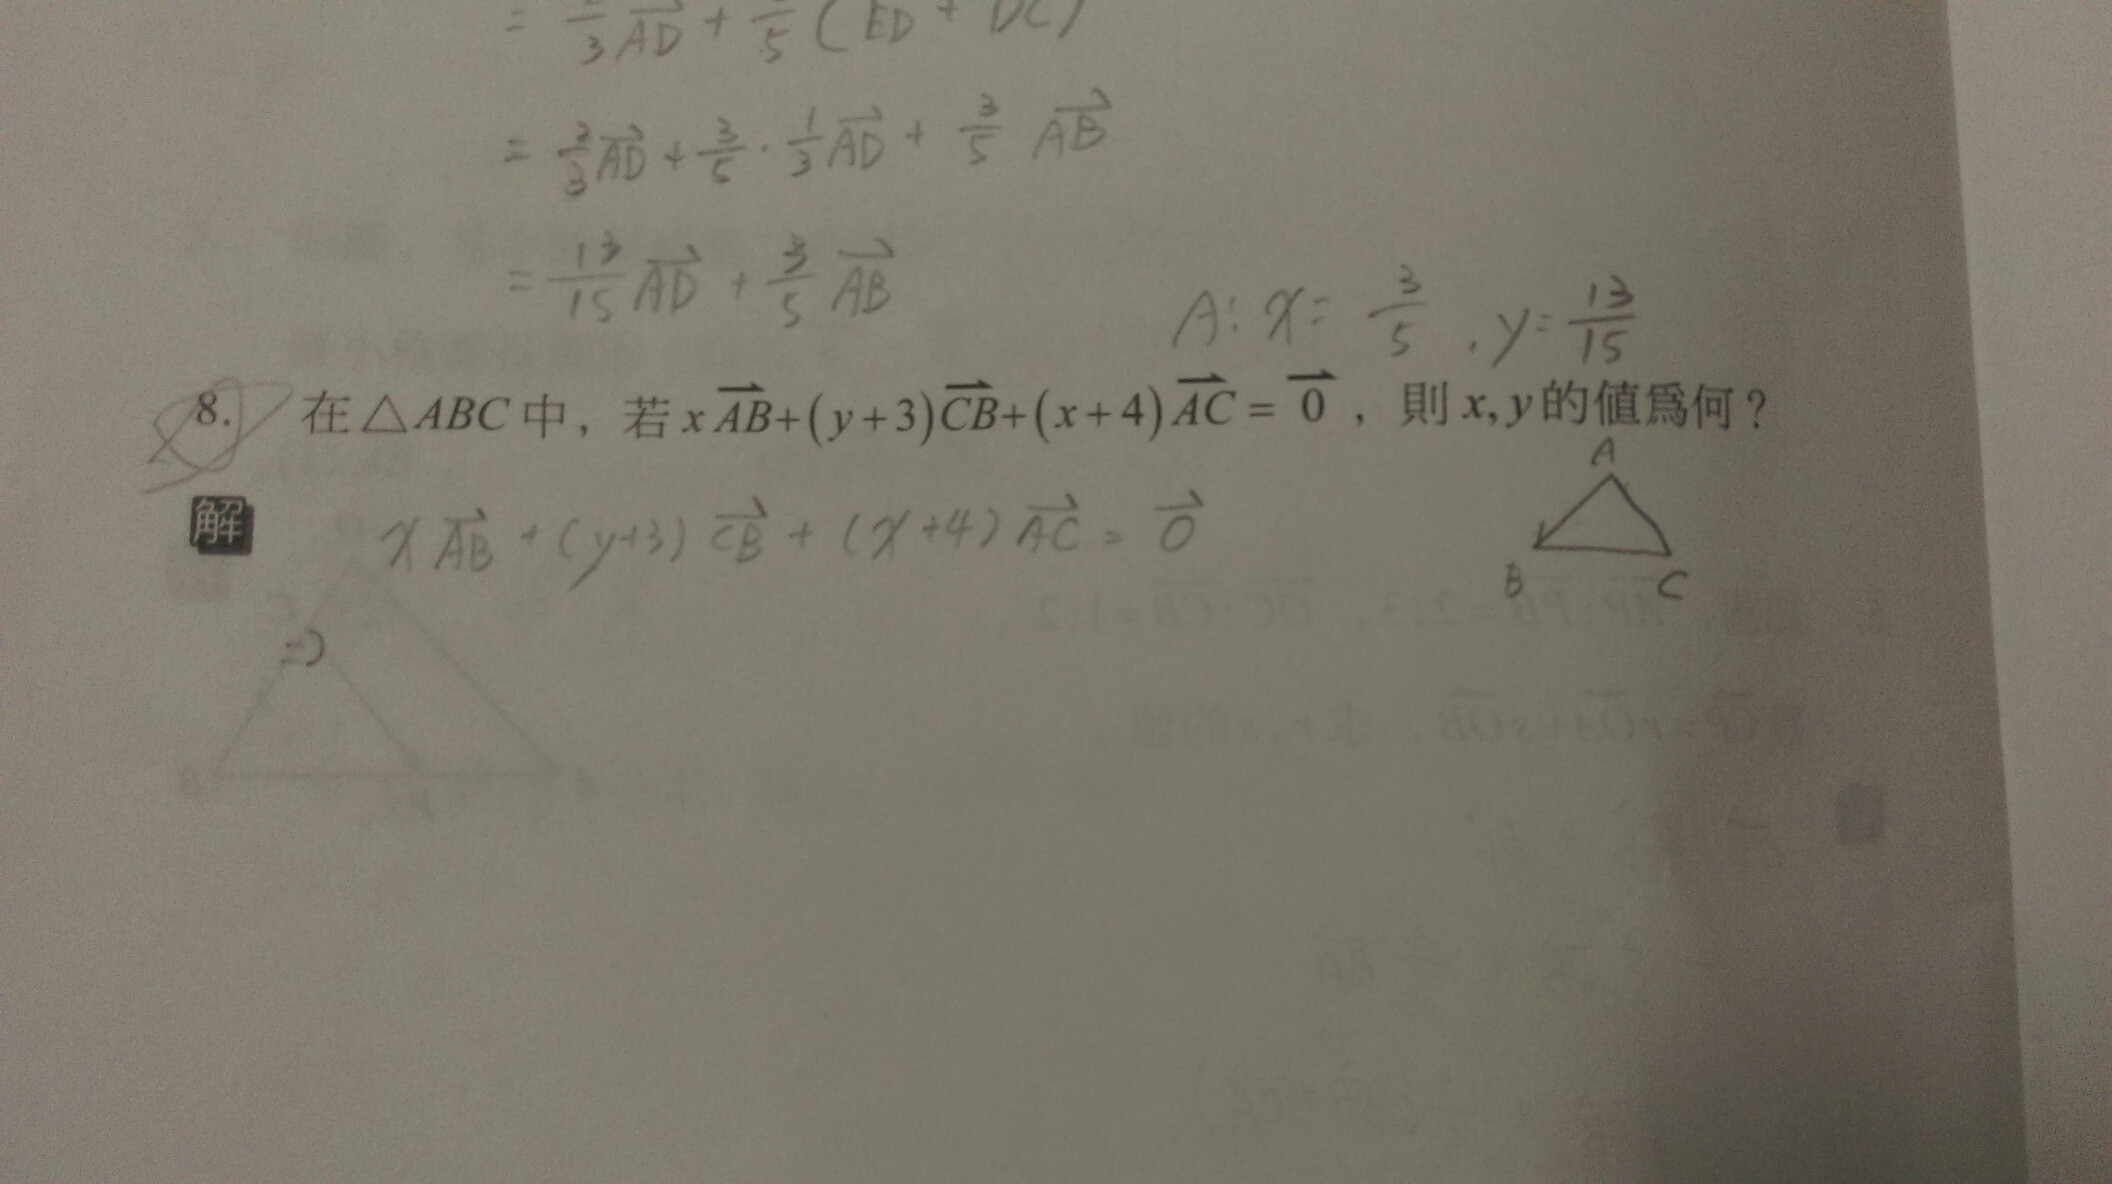 = 2/3 AD + 3/5 (ED + DC)
= 2/3 AD + 3/5 · 1/3 AD + 3/5 AB
= 13/15 AD + 3/5 AB
A: x = 3/5 , y = 13/15
8. 在△ABC中，若 x AB+(y+3)CB+(x+4)AC = 0 ，則 x, y 的值爲何？
解 x AB + (y+3) CB + (x+4) AC = 0
A
B C
=)